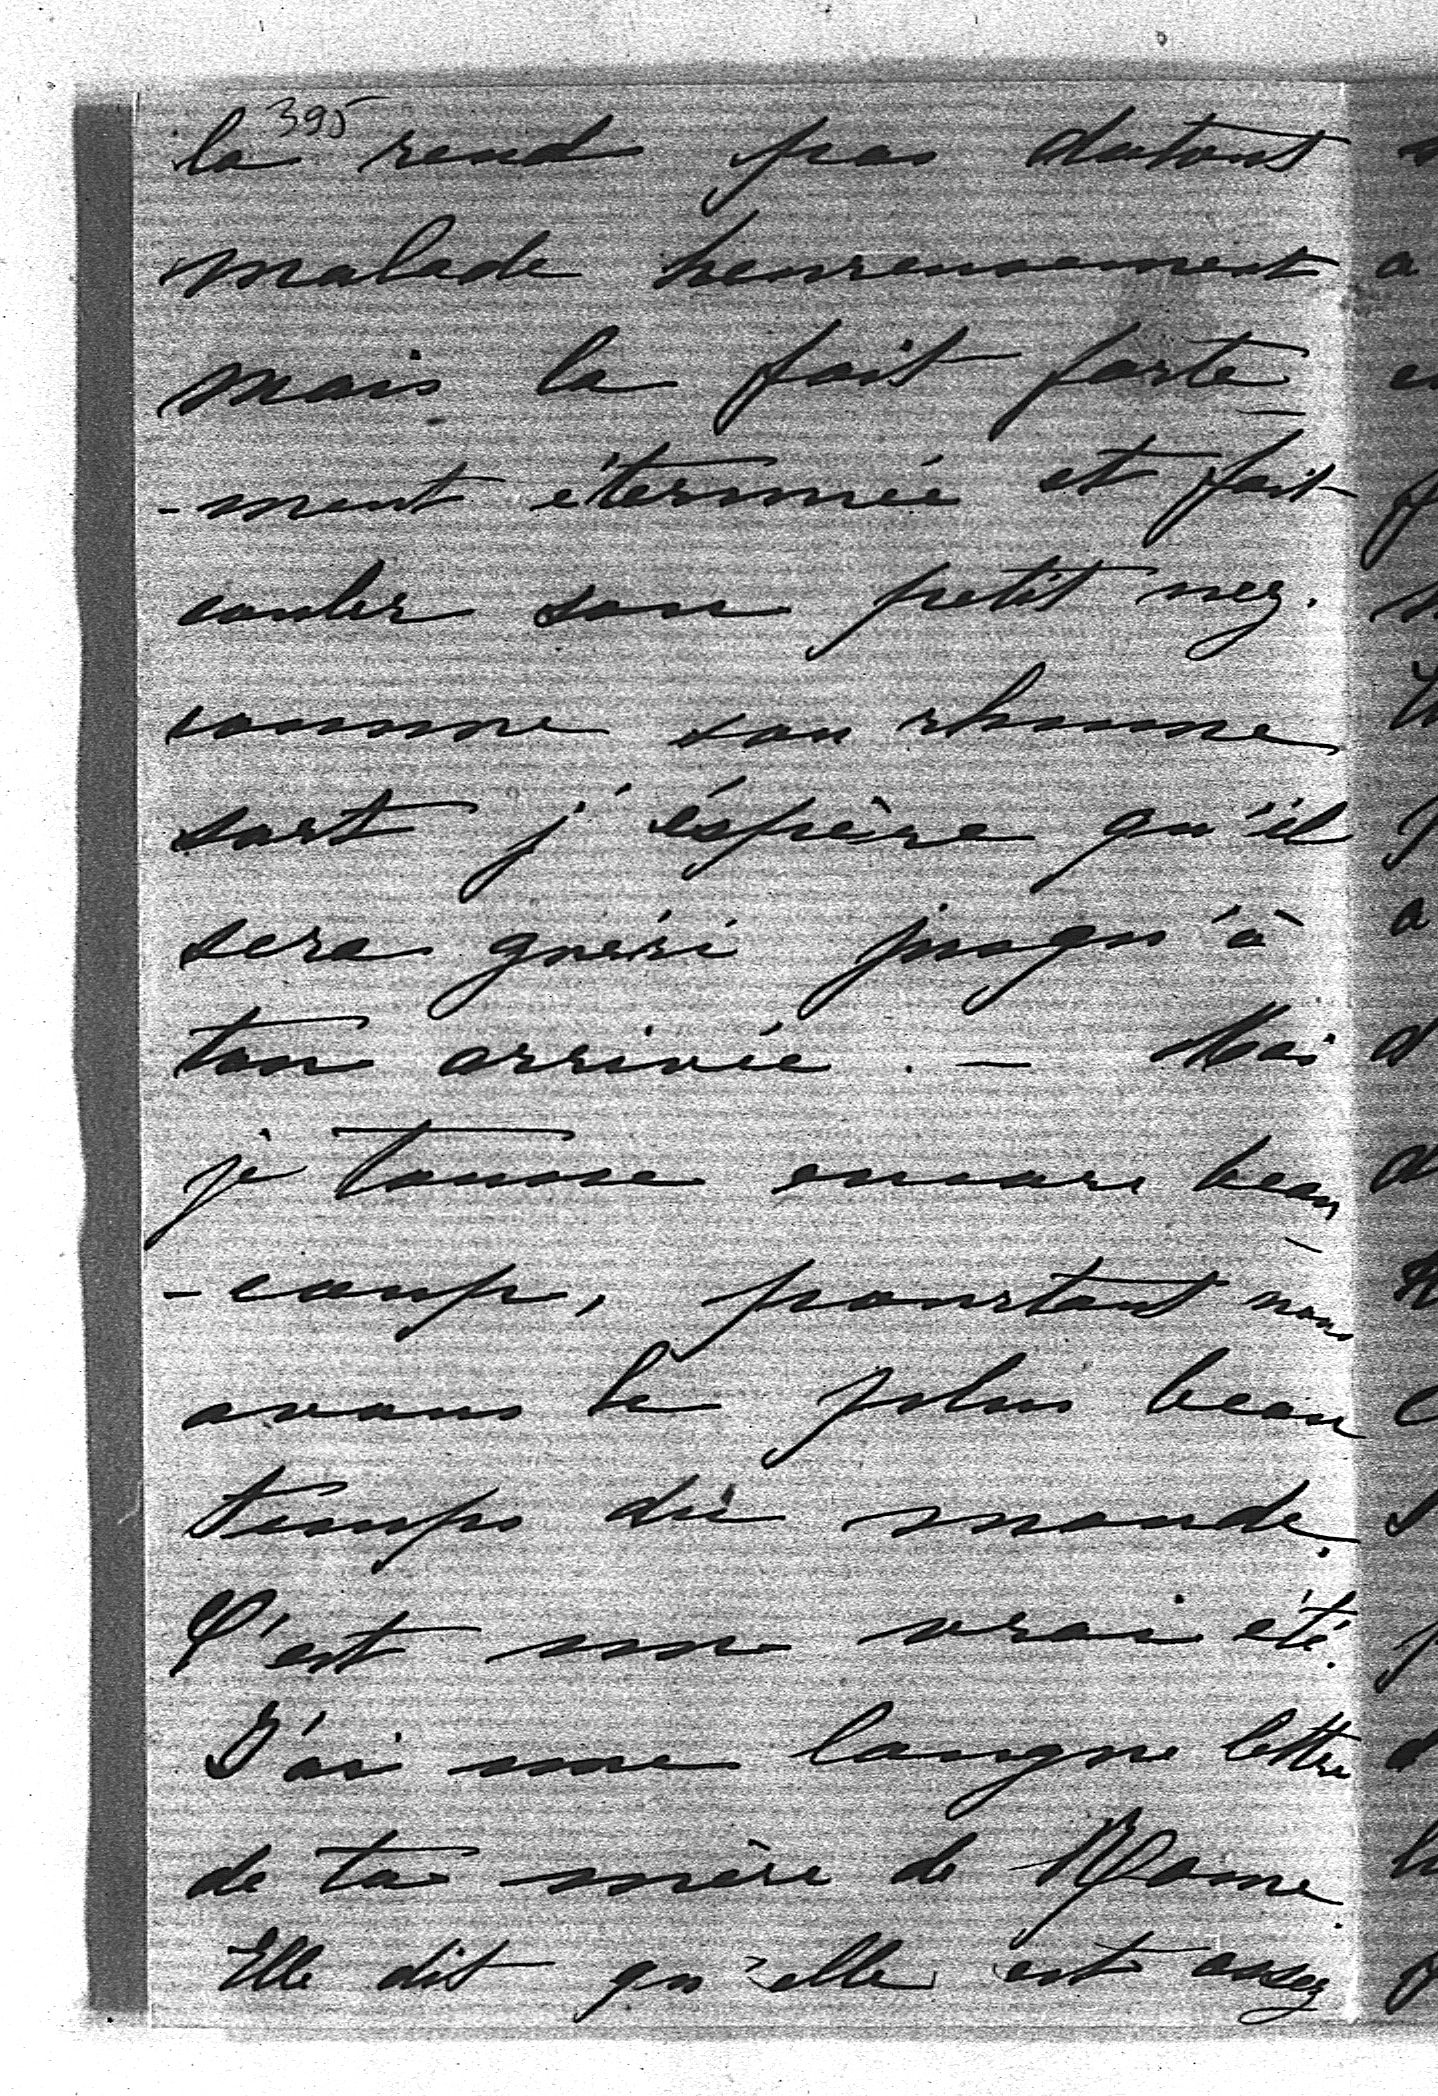 395
la rend pas dutout
malade heureusement
mais la fait forte
-ment éternuée et fait
couler son petit nez.
comme son rhume
sort j'éspère qu'il
sera guéri jusqu'à
ton arrivée. — Moi
je tousse encore beau
-coup, pourtant nous
avons le plus beau
temps du monde.
C'est un vrai été.
J'ai une longue lettre
de ta mère de Rome.
Elle dit qu'elle est assez